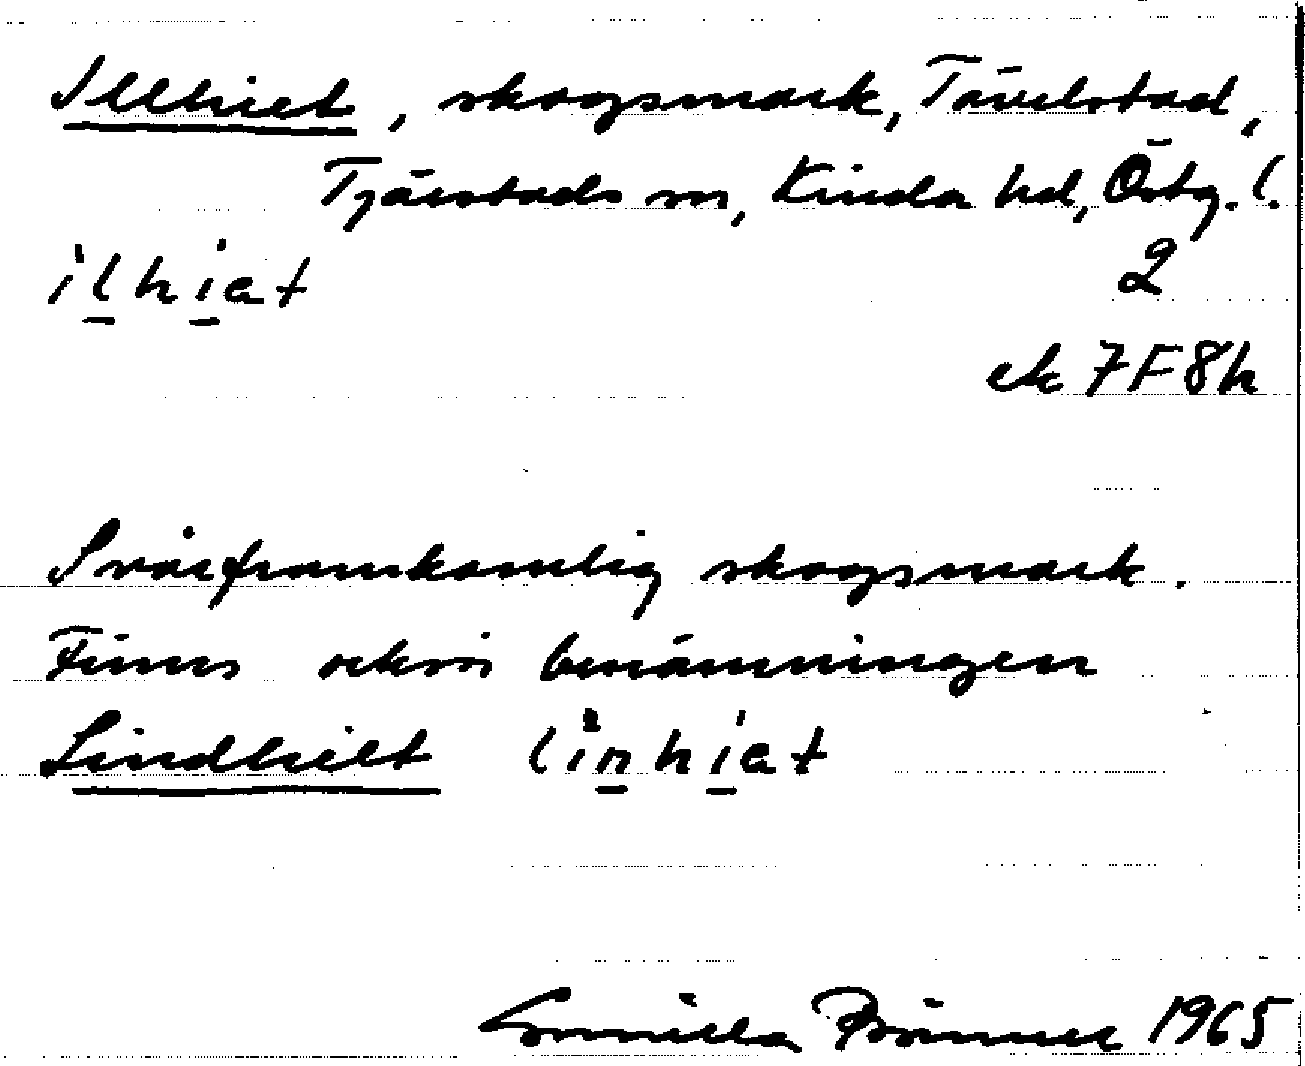 Illhiet, skogsmark, Tävelstad,
Tjärstads sn, Kinda hd, Östg. l.
ilhiat 2
ek 7F8h
Svårframkomlig skogsmark.
Finns också benämningen
Lindhiet linhiat
Gunilla 1965